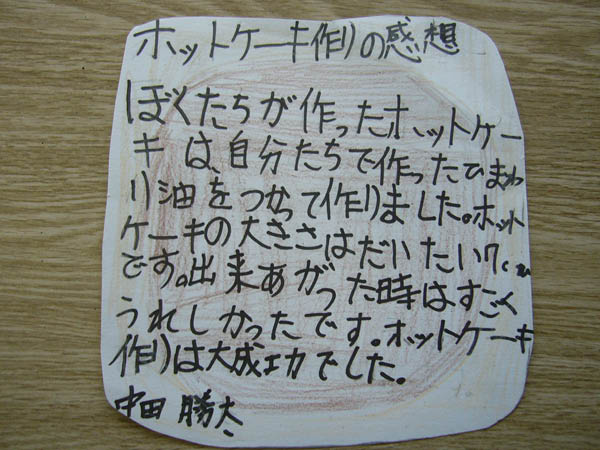 ホットケーキ作りの感想
ぼくたちが作ったホットケー
キは、自分たちで作ったひまわ
り油をつかって作りました。ホット
ケーキの大きさはだいたい17cm
です。出来あがった時はすごく
うれしかったです。ホットケーキ
作りは大成功でした。
中田 勝太